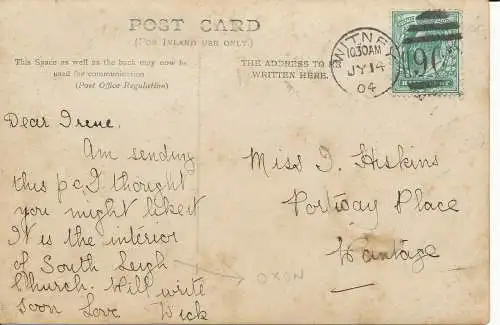 POST CARD
(FOR INLAND USE ONLY.)
This Space as well as the back may now be
used for communication
(Post Office Regulation)
THE ADDRESS TO BE
WRITTEN HERE.
WITNEY
10.30AM
JY 14
04
Dear Irene.
Am sending
this p.c. I thought
you might like it
It is the interior
of South Leigh
Church. Will write
soon Love
OXON
Miss I. Hiskins
Portway Place
Wantage